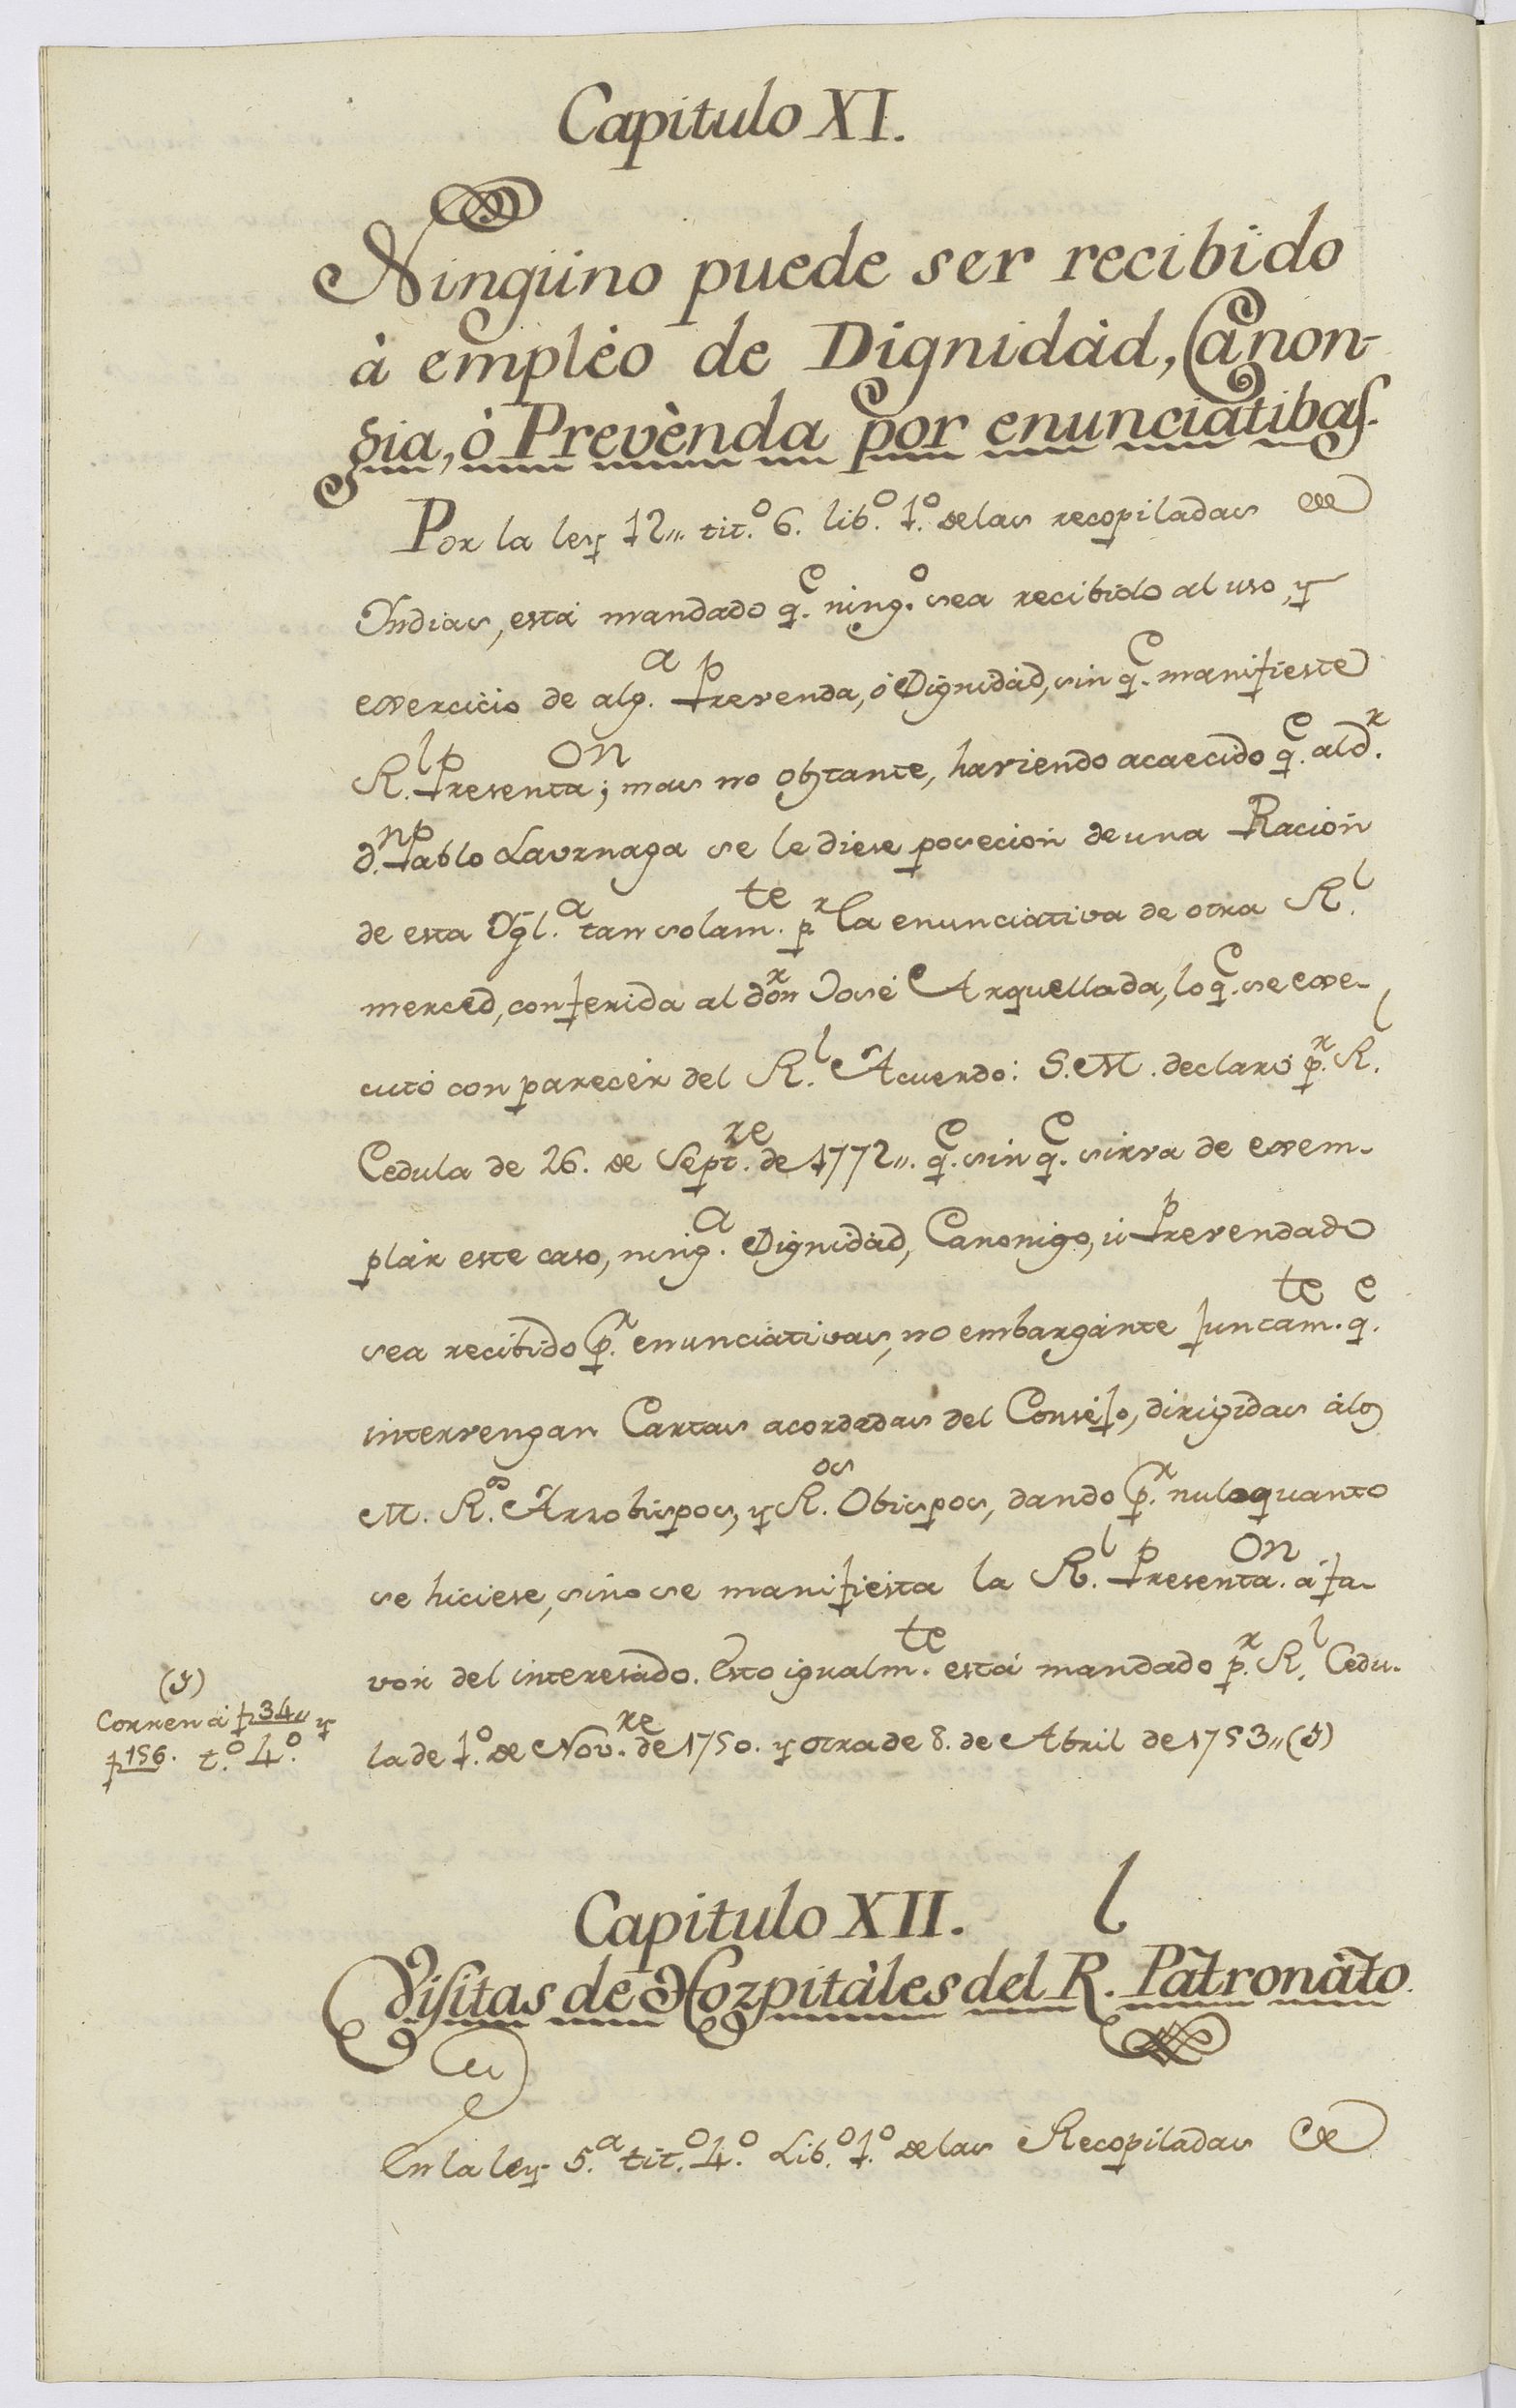 Capitulo XI.
Ningüno puede ser recibido
à empléo de Dignidàd, Canon-
gia, ò Prevènda por enunciatibas.
Por la ley 12,, tit.º 6. lib.º 1.º delas recopiladas de
Yndias, está mandado q.e ning.º sea recibido al uso, y
exercicio de alg.a Prevenda, ó Dignidad, sin q.e manifieste
R.l Presenta.on; mas no obstante, haviendo acaecido q.e al d.r
d.n Pablo Laurnaga se le diese posecion de una Racion
de esta Ygl.a tan solam.te p.r la enunciativa de otra R.l
merced, conferida al d.r don José Arquellada, lo q.e se exe-
cutó con parecer del R.l Acuerdo: S.M. declaró p.r R.l
Cedula de 26. de Sept.re de 1772,,. q.e sin q.e sirva de exem-
plar este caso, ning.a Dignidad, Canonigo, ú Prevendado
sea recibido p.r enunciativas, no embargante juntam.te q.e
intervengan Cartas acordadas del Consejo, dirigidas álos
M. R.os Arzobispos, y R.os Obispos, dando p.r nulo quanto
se hiciese, sino se manifiesta la R.l Presenta.on á fa-
vor del interesado. Esto igualm.te está mandado p.r R.l Cedu-
la de 1.º de Nov.re de 1750. y otra de 8. de Abril de 1753,, (J)
(J)
Corren á f 34,, y
f 156. t.º 4.º
Capitulo XII.
Visitas de Hozpitàles del R.l Patronàto.
En la ley 5.a tit.º 4.º Lib.º 1.º delas Recopiladas de